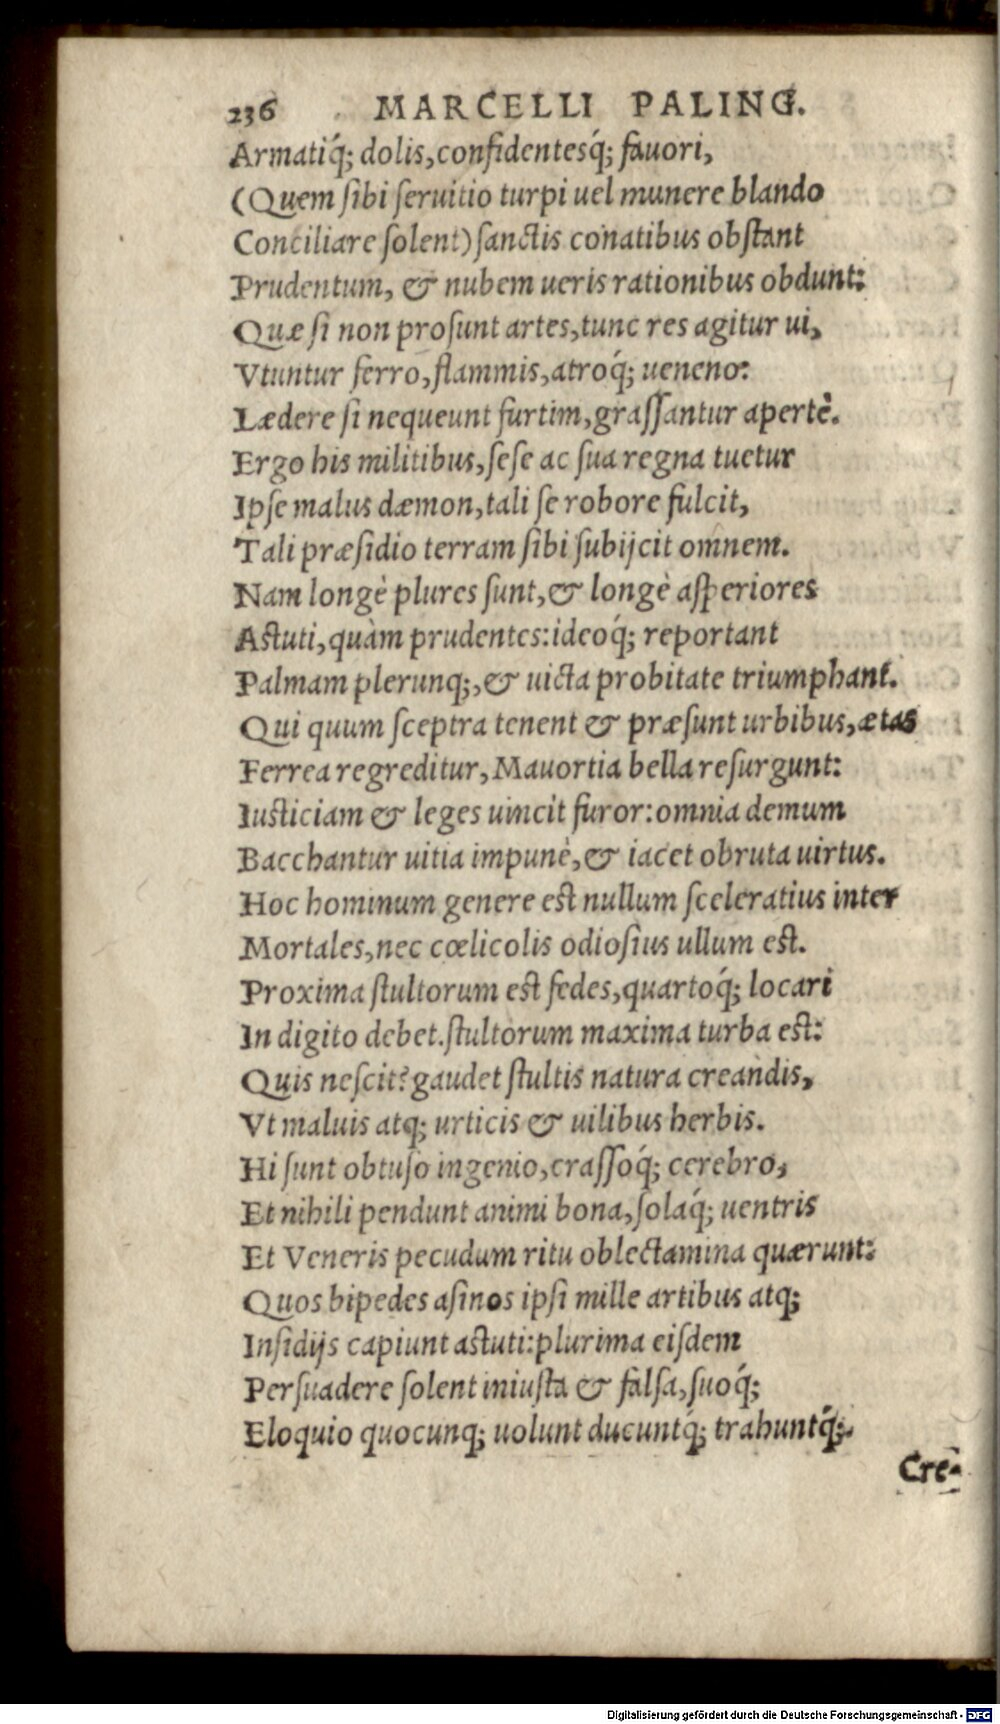 236 MARCELLI PALING.
Armatiq́; dolis, confidentesq́; fauori,
(Quem ſibi ſeruitio turpi uel munere blando
Conciliare ſolent) ſanctis conatibus obſtant
Prudentum, & nubem ueris rationibus obdunt:
Quæ ſi non proſunt artes, tunc res agitur ui,
Vtuntur ferro, flammis, atroq́; ueneno:
Lædere ſi nequeunt furtim, graſſantur apertè.
Ergo his militibus, ſeſe ac ſua regna tuetur
Ipſe malus dæmon, tali ſe robore fulcit,
Tali præſidio terram ſibi ſubijcit omnem.
Nam longè plures ſunt, & longè aſperiores
Aſtuti, quàm prudentes: ideoq́; reportant
Palmam plerunq;, & uicta probitate triumphant.
Qui quum ſceptra tenent & præſunt urbibus, ætas
Ferrea regreditur, Mauortia bella reſurgunt:
Iuſticiam & leges uincit furor: omnia demum
Bacchantur uitia impunè, & iacet obruta uirtus.
Hoc hominum genere eſt nullum ſceleratius inter
Mortales, nec cœlicolis odioſius ullum eſt.
Proxima ſtultorum eſt ſedes, quartoq́; locari
In digito debet. ſtultorum maxima turba eſt:
Quis neſcit? gaudet ſtultis natura creandis,
Vt maluis atq; urticis & uilibus herbis.
Hi ſunt obtuſo ingenio, craſſoq́; cerebro,
Et nihili pendunt animi bona, ſolaq́; uentris
Et Veneris pecudum ritu oblectamina quærunt:
Quos bipedes aſinos ipſi mille artibus atq;
Inſidijs capiunt aſtuti: plurima eiſdem
Perſuadere ſolent iniuſta & falſa, ſuoq́;
Eloquio quocunq; uolunt ducuntq́; trahuntq́;.
Cre-
Digitalisierung gefördert durch die Deutsche Forschungsgemeinschaft - DFG